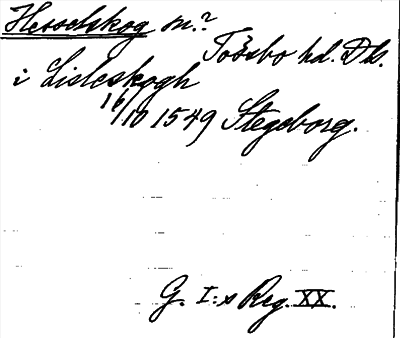 Hesselskog sn.?
Tössbo hd. Dls.
i Lisleskogh
16/10 1549 Stegeborg.
G. I:s Reg. XX.